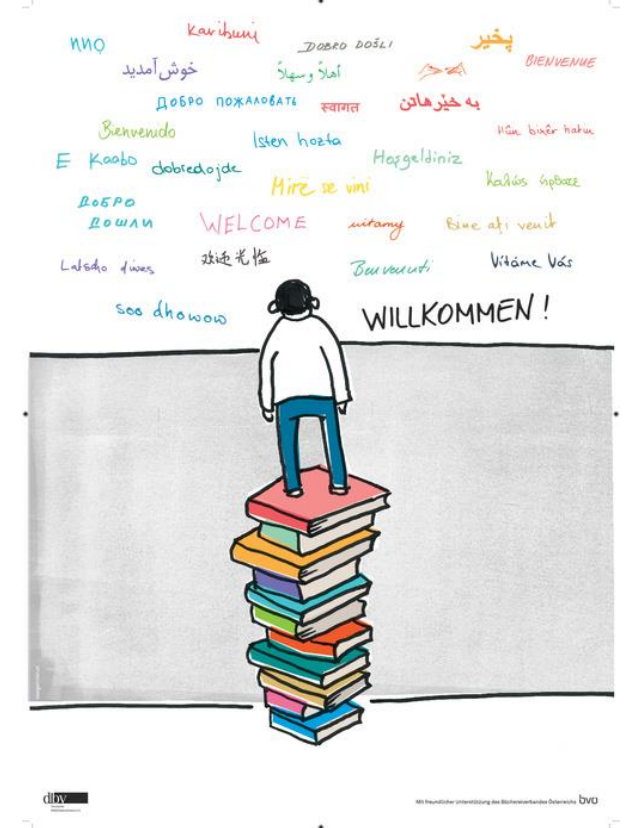 Karibuni
DOBRO DOŠLI
پخیر
BIENVENUE
خوش آمدید
أهلاً وسهلاً
ДОБРО ПОЖАЛОВАТЬ
स्वागत
به خێر هاتن
Bienvenido
Isten hozta
Hûn bixêr hatin
E Kaabo
dobredojde
Hoşgeldiniz
Mirë se vini
ДОБРО
ДОШЛИ
WELCOME
witamy
Bine ați venit
欢迎光临
Benvenuti
Vítáme Vás
soo dhowow
WILLKOMMEN!
dbv
Mit freundlicher Unterstützung des Büchereiverbandes Österreichs bvö